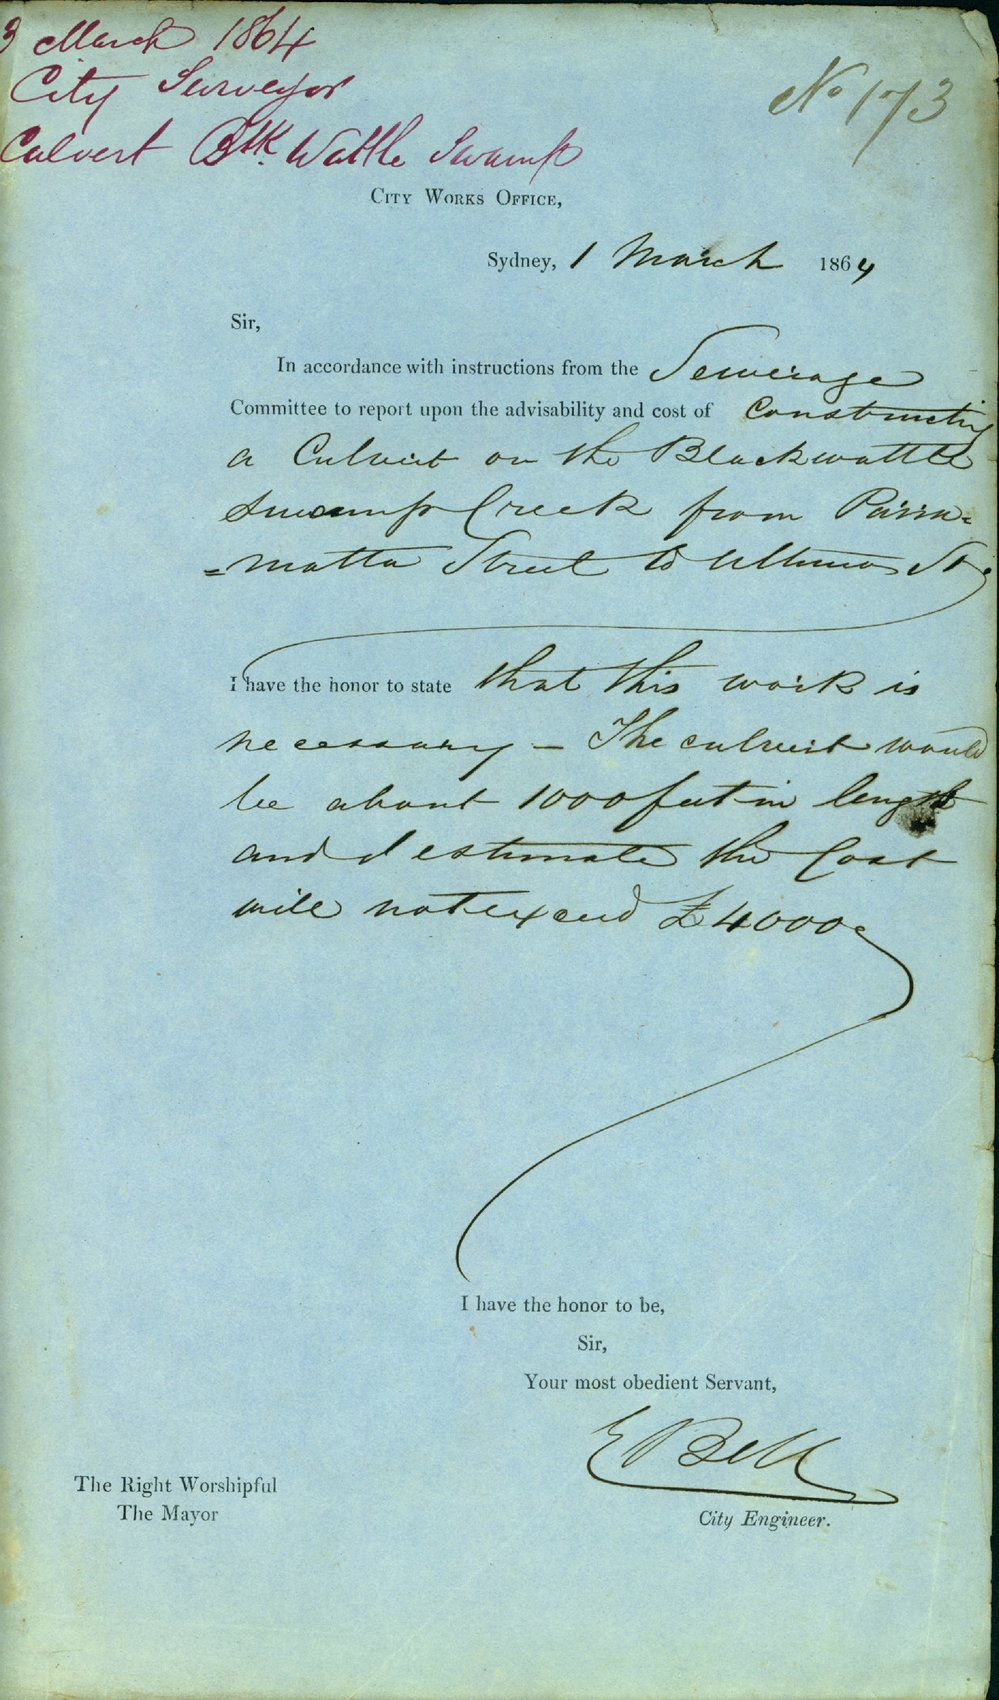 3 March 1864
City Surveyor
No 173
Culvert Blk. Wattle Swamp
City Works Office,
Sydney, 1 March 1864
Sir,
In accordance with instructions from the Sewerage
Committee to report upon the advisability and cost of Constructing
a Culvert on the Blackwattle
Swamp Creek from Parra=
=matta Street to Ultimo St.
I have the honor to state that this work is
necessary – The culvert would
be about 1000 feet in length
and I estimate the Cost
will not exceed £4000.
I have the honor to be,
Sir,
Your most obedient Servant,
E Bell
City Engineer.
The Right Worshipful
The Mayor